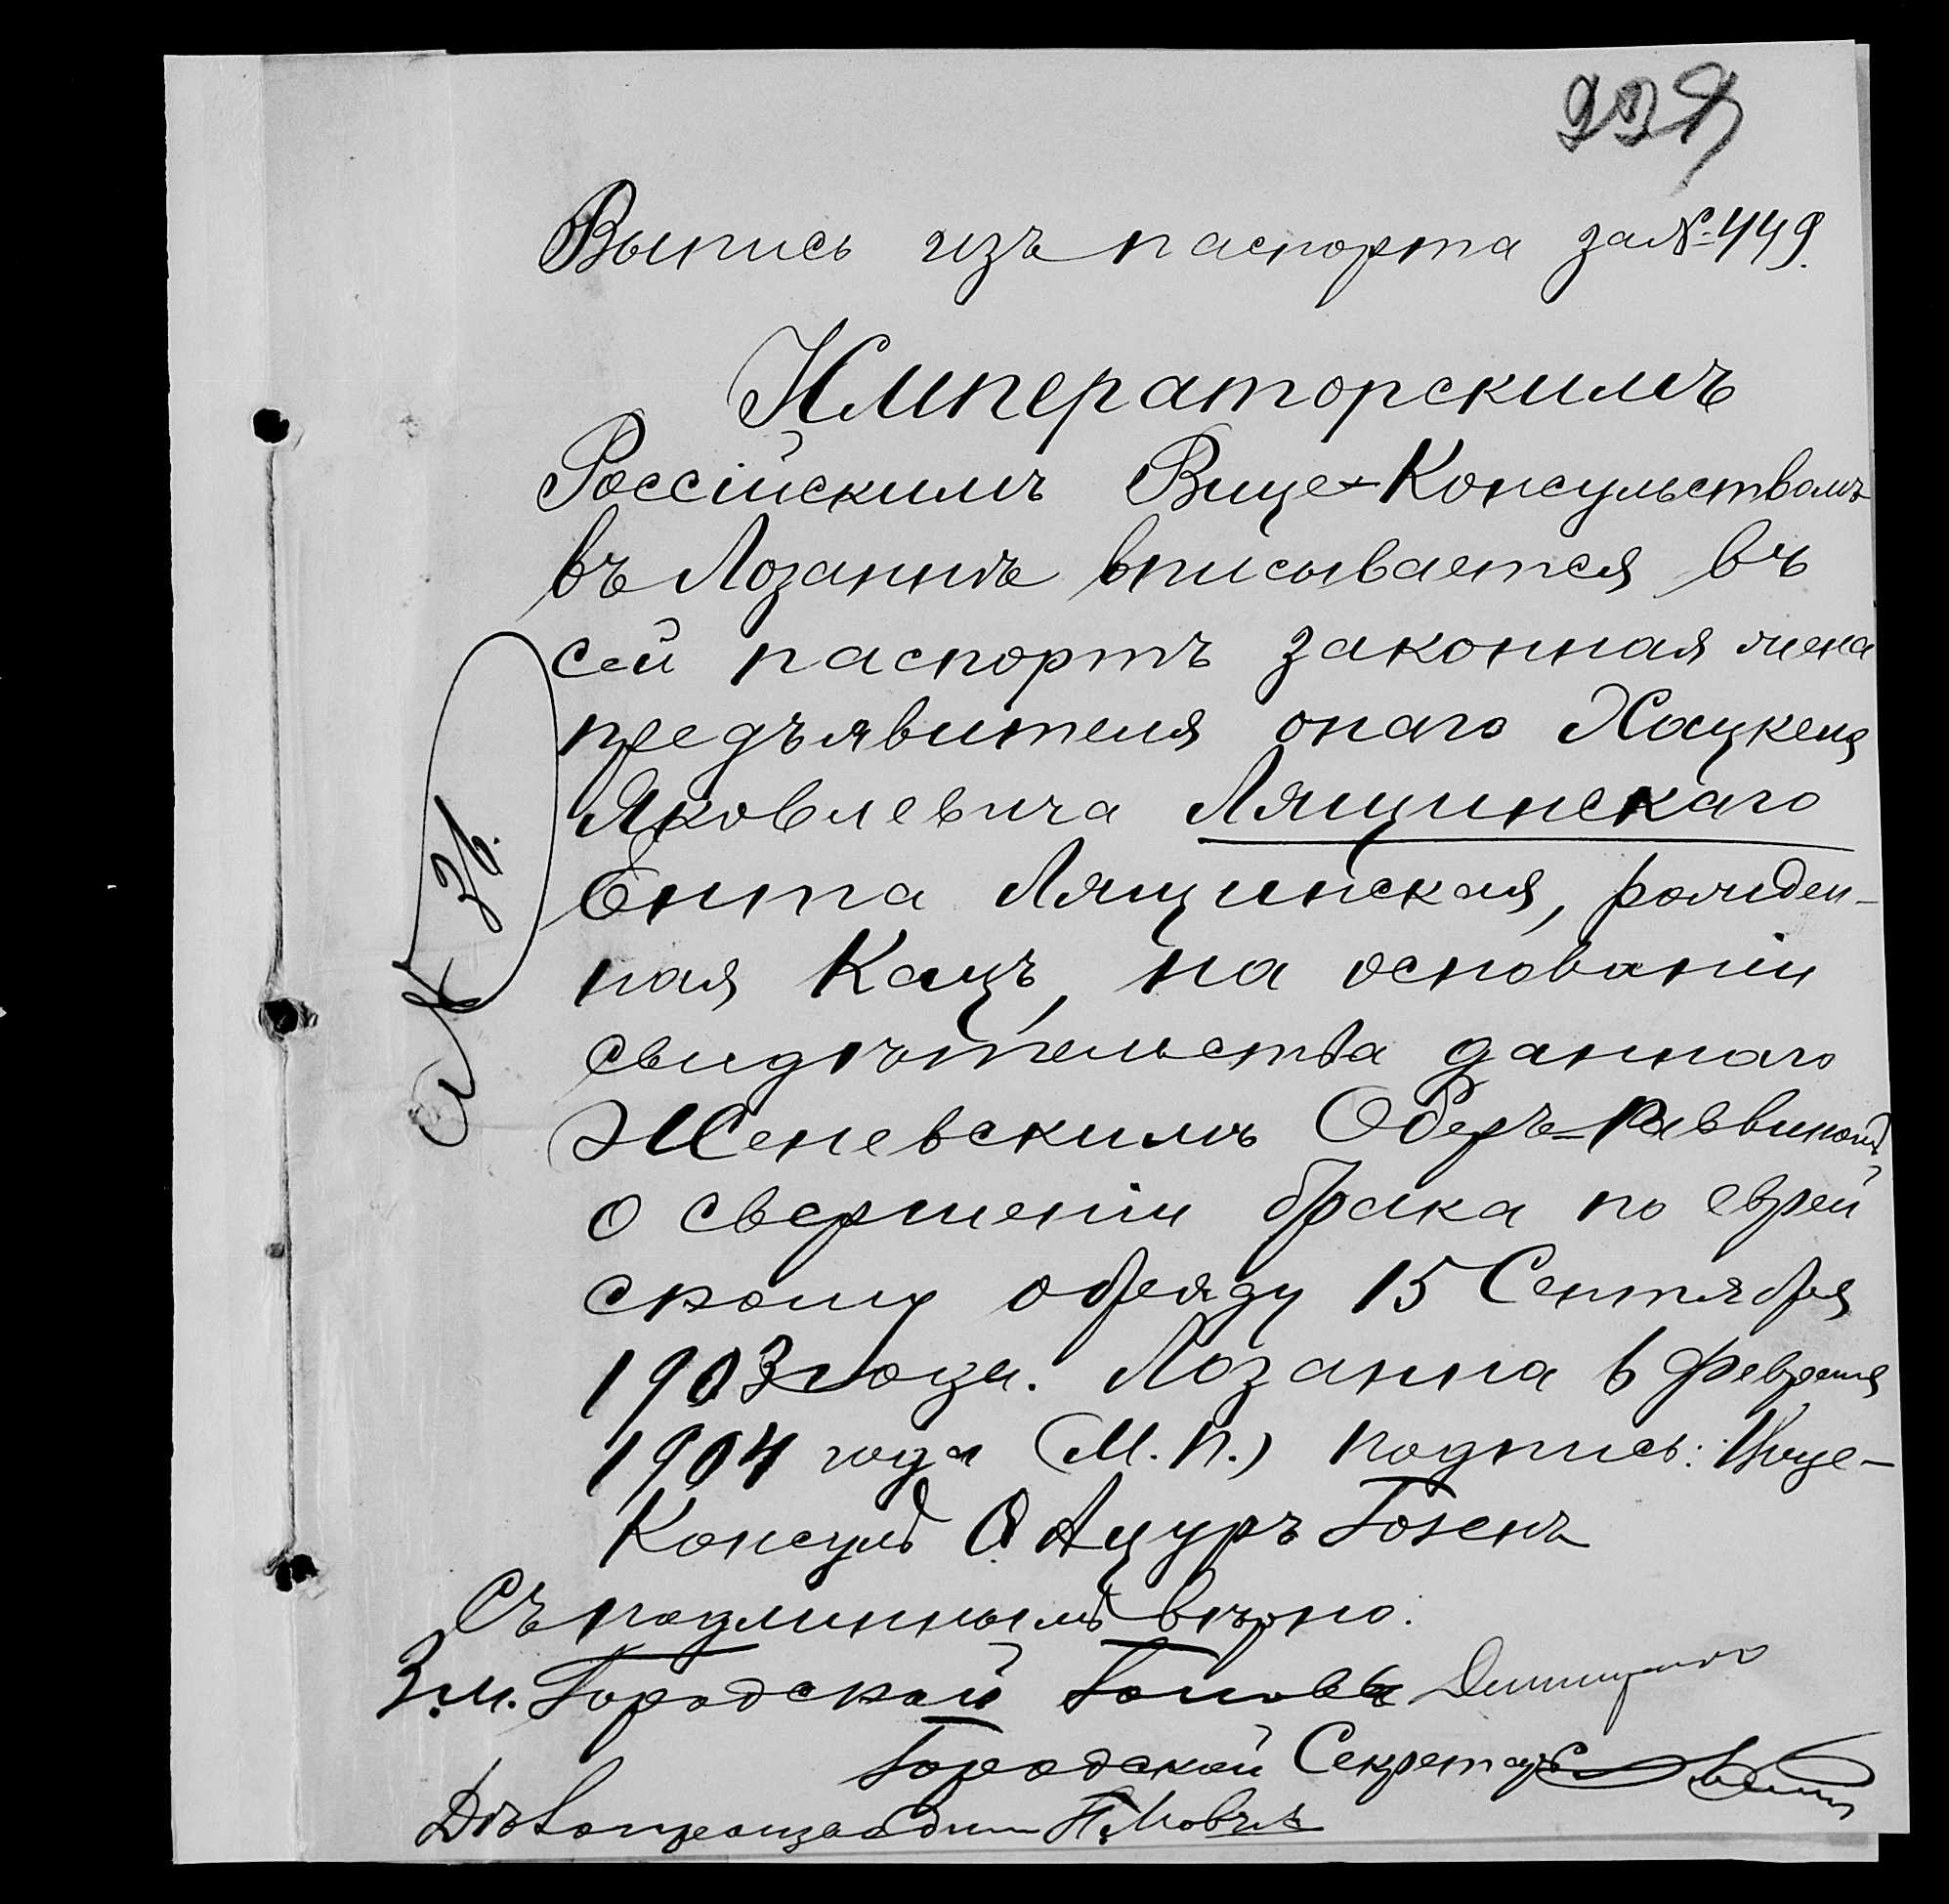 Выпись изъ паспорта за № 449.
Императорскимъ
Россійскимъ Вице-Консульствомъ
въ Лозаннѣ вписывается въ
сей паспортъ законная жена
предъявителя онаго Хацкеля
Яковлевича Лящинскаго
Ента Лящинская, рожден-
ная Кацъ, на основаніи
свидѣтельства даннаго
Женевскимъ Оберъ-Раввиномъ
о свершеніи брака по еврей
скому обряду 15 Сентября
1903 года. Лозанна 6 Февраля
1904 года (М.П.) подпись: Вице-
Консулъ
Съ подлиннымъ вѣрно:
Городской Голова
Городской Секретарь